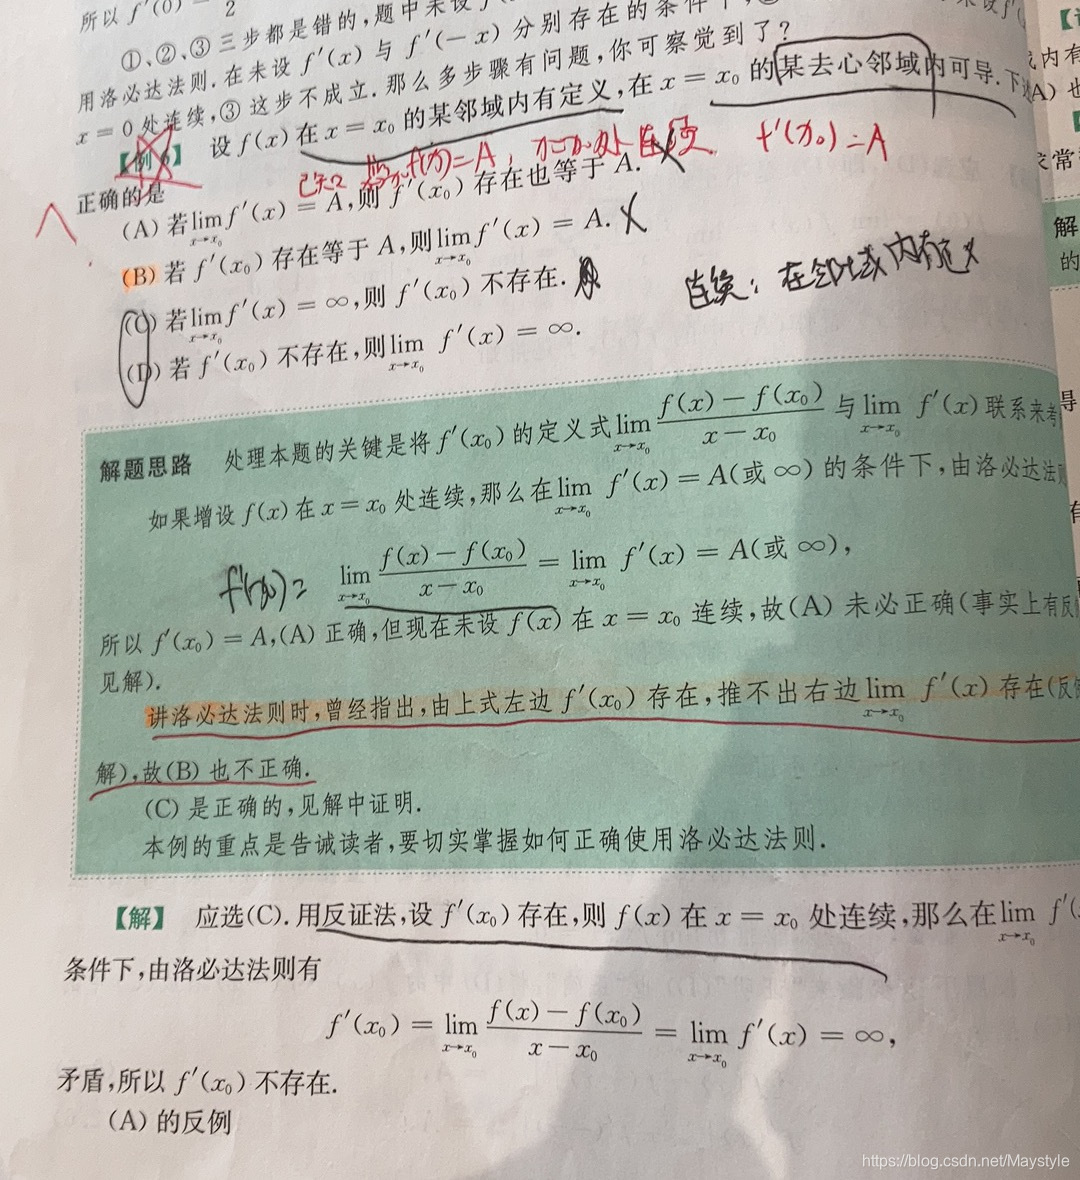 所以 f′(0) 2
①、②、③ 三步都是错的,题中未设
用洛必达法则.在未设 f′(x) 与 f′(−x) 分别存在的条件下,
x=0 处连续,③ 这步不成立.那么多步骤有问题,你可察觉到了?
【例】 设 f(x) 在 x=x₀ 的某邻域内有定义,在 x=x₀ 的某去心邻域内可导.下
已知 f(x)=A, x=x₀处 连续 f′(x₀)=A
正确的是
(A) 若 lim_{x→x₀} f′(x)=A,则 f′(x₀) 存在也等于 A.
(B) 若 f′(x₀) 存在等于 A,则 lim_{x→x₀} f′(x)=A.
(C) 若 lim_{x→x₀} f′(x)=∞,则 f′(x₀) 不存在.
连续:在邻域内有定义
(D) 若 f′(x₀) 不存在,则 lim_{x→x₀} f′(x)=∞.
解题思路 处理本题的关键是将 f′(x₀) 的定义式 lim_{x→x₀} (f(x)−f(x₀))/(x−x₀) 与 lim_{x→x₀} f′(x) 联系来考
如果增设 f(x) 在 x=x₀ 处连续,那么在 lim_{x→x₀} f′(x)=A(或 ∞) 的条件下,由洛必达法则
f′(x₀)= lim_{x→x₀} (f(x)−f(x₀))/(x−x₀) = lim_{x→x₀} f′(x)=A(或 ∞),
所以 f′(x₀)=A,(A) 正确,但现在未设 f(x) 在 x=x₀ 连续,故(A) 未必正确(事实上有反
见解).
讲洛必达法则时,曾经指出,由上式左边 f′(x₀) 存在,推不出右边 lim_{x→x₀} f′(x) 存在(反
解),故(B) 也不正确.
(C) 是正确的,见解中证明.
本例的重点是告诫读者,要切实掌握如何正确使用洛必达法则.
【解】 应选(C).用反证法,设 f′(x₀) 存在,则 f(x) 在 x=x₀ 处连续,那么在 lim_{x→x₀} f′(
条件下,由洛必达法则有
f′(x₀) = lim_{x→x₀} (f(x)−f(x₀))/(x−x₀) = lim_{x→x₀} f′(x)=∞,
矛盾,所以 f′(x₀) 不存在.
(A) 的反例
内有
A) 也
求常
解
的
https://blog.csdn.net/Maystyle